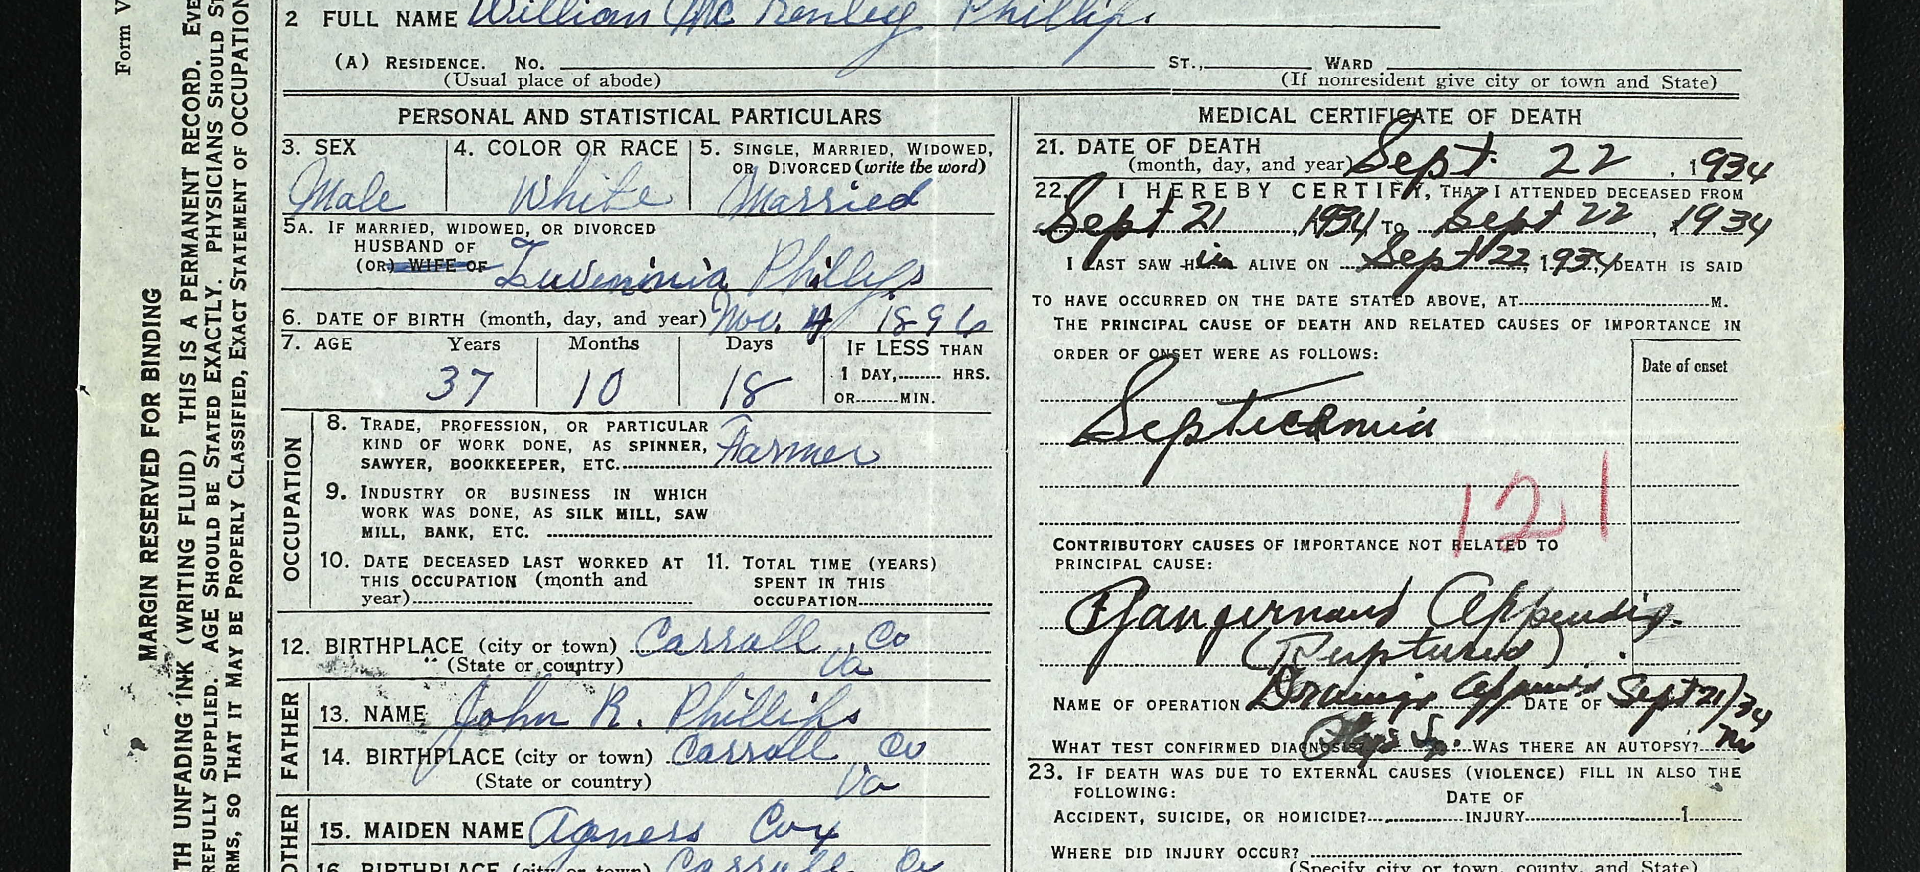 Form V
MARGIN RESERVED FOR BINDING
TH UNFADING INK (WRITING FLUID) THIS IS A PERMANENT RECORD. Eve
REFULLY SUPPLIED. AGE SHOULD BE STATED EXACTLY. PHYSICIANS SHOULD ST
RMS, SO THAT IT MAY BE PROPERLY CLASSIFIED, EXACT STATEMENT OF OCCUPATION
2 FULL NAME William Mc Kenley Phillips
(A) RESIDENCE. No. ST., WARD
(Usual place of abode) (If nonresident give city or town and State)
PERSONAL AND STATISTICAL PARTICULARS
3. SEX 4. COLOR OR RACE 5. SINGLE, MARRIED, WIDOWED,
OR DIVORCED (write the word)
Male White Married
5A. IF MARRIED, WIDOWED, OR DIVORCED
HUSBAND OF
(OR) WIFE OF Phillips
6. DATE OF BIRTH (month, day, and year) Nov. 4 1896
7. AGE Years Months Days IF LESS THAN
1 DAY, HRS.
37 10 18 OR MIN.
OCCUPATION
8. TRADE, PROFESSION, OR PARTICULAR
KIND OF WORK DONE, AS SPINNER,
SAWYER, BOOKKEEPER, ETC. Farmer
9. INDUSTRY OR BUSINESS IN WHICH
WORK WAS DONE, AS SILK MILL, SAW
MILL, BANK, ETC.
10. DATE DECEASED LAST WORKED AT 11. TOTAL TIME (YEARS)
THIS OCCUPATION (month and SPENT IN THIS
year) OCCUPATION
12. BIRTHPLACE (city or town) Carroll Co
(State or country) Va
FATHER
13. NAME John R. Phillips
14. BIRTHPLACE (city or town) Carroll Co
(State or country) Va
OTHER
15. MAIDEN NAME Agness Cox
16. BIRTHPLACE (city or town) Carroll Co
MEDICAL CERTIFICATE OF DEATH
21. DATE OF DEATH
(month, day, and year) Sept. 22, 1934
22. I HEREBY CERTIFY, THAT I ATTENDED DECEASED FROM
Sept 21, 1934 TO Sept 22, 1934
I LAST SAW Him ALIVE ON Sept 22, 1934, DEATH IS SAID
TO HAVE OCCURRED ON THE DATE STATED ABOVE, AT M.
THE PRINCIPAL CAUSE OF DEATH AND RELATED CAUSES OF IMPORTANCE IN
ORDER OF ONSET WERE AS FOLLOWS:
Date of onset
Septicemia
121
CONTRIBUTORY CAUSES OF IMPORTANCE NOT RELATED TO
PRINCIPAL CAUSE:
Appendix.
(Ruptured)
NAME OF OPERATION DATE OF Sept 21/34
WHAT TEST CONFIRMED DIAGNOSIS? WAS THERE AN AUTOPSY? no
23. IF DEATH WAS DUE TO EXTERNAL CAUSES (VIOLENCE) FILL IN ALSO THE
FOLLOWING:
DATE OF
ACCIDENT, SUICIDE, OR HOMICIDE? INJURY 1
WHERE DID INJURY OCCUR?
(Specify city or town, county, and State)